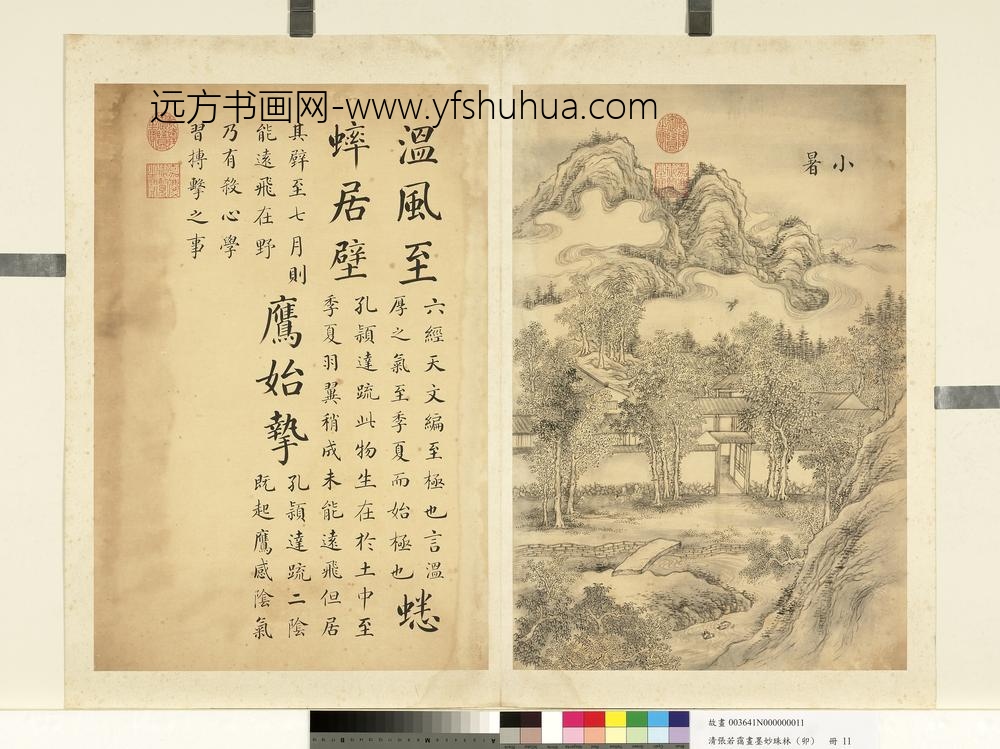 远方书画网-www.yfshuhua.com
小暑
溫風至
六經天文編至極也言溫
厚之氣至季夏而始極也
蟋
蟀居壁
孔穎達疏此物生在於土中至
季夏羽翼稍成未能遠飛但居
其壁至七月則
能遠飛在野
鷹始摯
孔穎達疏二陰
既起鷹感陰氣
乃有殺心學
習搏擊之事
故畫 003641N000000011
清張若靄畫墨妙珠林（卯） 冊 11